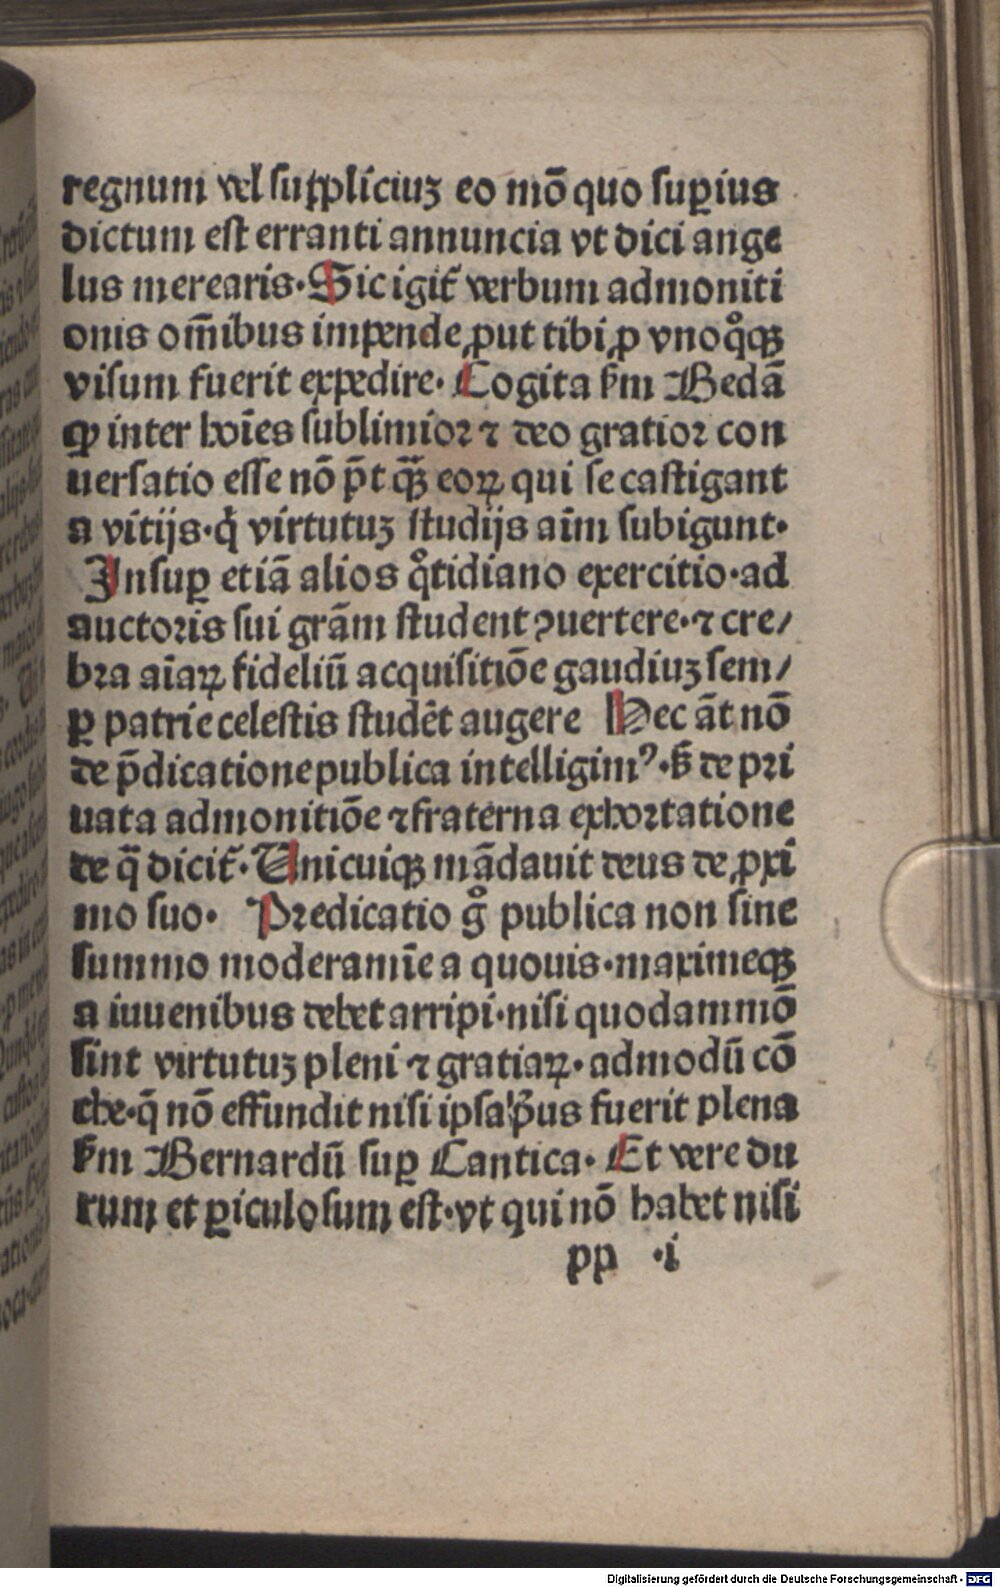 regnum vel suppliciuʒ eo mō quo suꝑius
dictum est erranti annuncia vt dici ange
lus merearis·Sic igit̄ verbum admoniti
onis om̄ibus impende ꝓut tibi ꝓ vnoq̊qꝫ
visum fuerit expedire· Cogita ẜm Bedā
ꝙ inter hoīes sublimioꝛ ⁊ deo gratioꝛ con
uersatio esse nō p̄t qꝫ̄ eoꝝ qui se castigant
a vitijs·q̇ virtutuʒ studijs aīm subigunt·
Insuꝑ etiā alios q̊tidiano exercitio·ad
auctoris sui grām student ꝯuertere·⁊ cre/
bꝛa aīaꝝ fideliū acquisitiōe gaudiuʒ sem/
ꝑ patrie celestis studēt augere Hec āt nō
de p̄dicatione publica intelligimꝰ·ẜ de pꝛi
uata admonitiōe ⁊ fraterna exhoꝛtatione
de q̄ dicit̄·Unicuiqꝫ mādauit deus de ꝓxi
mo suo· Pꝛedicatio g̊ publica non sine
summo moderamīe a quouis·maximeqꝫ
a iuuenibus debet arripi·nisi quodammō
sint virtutuʒ pleni ⁊ gratiaꝝ·admodū cō
che·q̄ nō effundit nisi ipsa p̄us fuerit plena
ẜm Bernardū suꝑ Cantica· Et vere du
rum et ꝑiculosum est·vt qui nō habet nisi
pp ·i
Digitalisierung gefördert durch die Deutsche Forschungsgemeinschaft - DFG